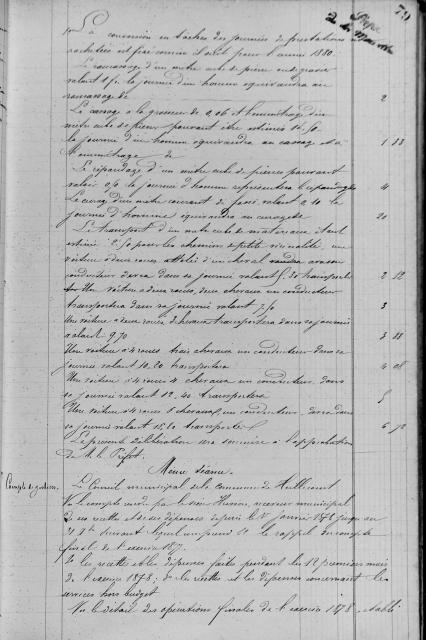 79
La conversion en tâches des journées de prestations
rachetées est fixée comme il suit pour l'année 1880.
Le ramassage d'un mètre cube de pierre ou de gravier
valant la journée d'un homme équivaudra au
ramassage de 2
Le cassage à la grosseur de 0,06 et l'emmétrage d'un
mètre cube de pierre pouvant être estimés
la journée d'un homme équivaudra au cassage et à
l'emmétrage de 1 33
Le répandage d'un mètre cube de pierres pouvant
valoir la journée d'homme représentera le répandage 4
Le curage d'un mètre courant de fossé valant la
journée d'homme équivaudra au curage de 20
Le transport d'un mètre cube de matériaux étant
estimé pour les chemins de petite vicinalité, une
voiture à deux roues attelée d'un cheval avec son
conducteur dans sa journée valant transportera 2 12
Une voiture à deux roues, deux chevaux un conducteur
transportera dans sa journée valant 3
Une voiture à deux roues 3 chevaux transportera dans sa journée
valant 9.70 3 88
Une voiture à 4 roues trois chevaux un conducteur dans sa
journée valant 10.20 transportera 4 08
Une voiture à 4 roues 4 chevaux un conducteur, dans
sa journée valant 12.40 transportera 5
Une voiture à 4 roues 5 chevaux, un conducteur, dans
sa journée valant transportera 6
La présente délibération sera soumise à l'approbation
de M. le Préfet.
Même séance.
Compte de gestion.
Le Conseil municipal de la commune de
Vu le compte rendu par le sieur Husson, receveur municipal
des recettes et des dépenses depuis le 1er janvier 1878 jusqu'au
le rappel du compte
final de l'exercice 1877.
2o les recettes et les dépenses faites pendant les 12 premiers mois
de l'exercice 1878; 3o les recettes et les dépenses concernant les
services hors budget
Vu le détail des opérations finales de l'exercice 1878, établi